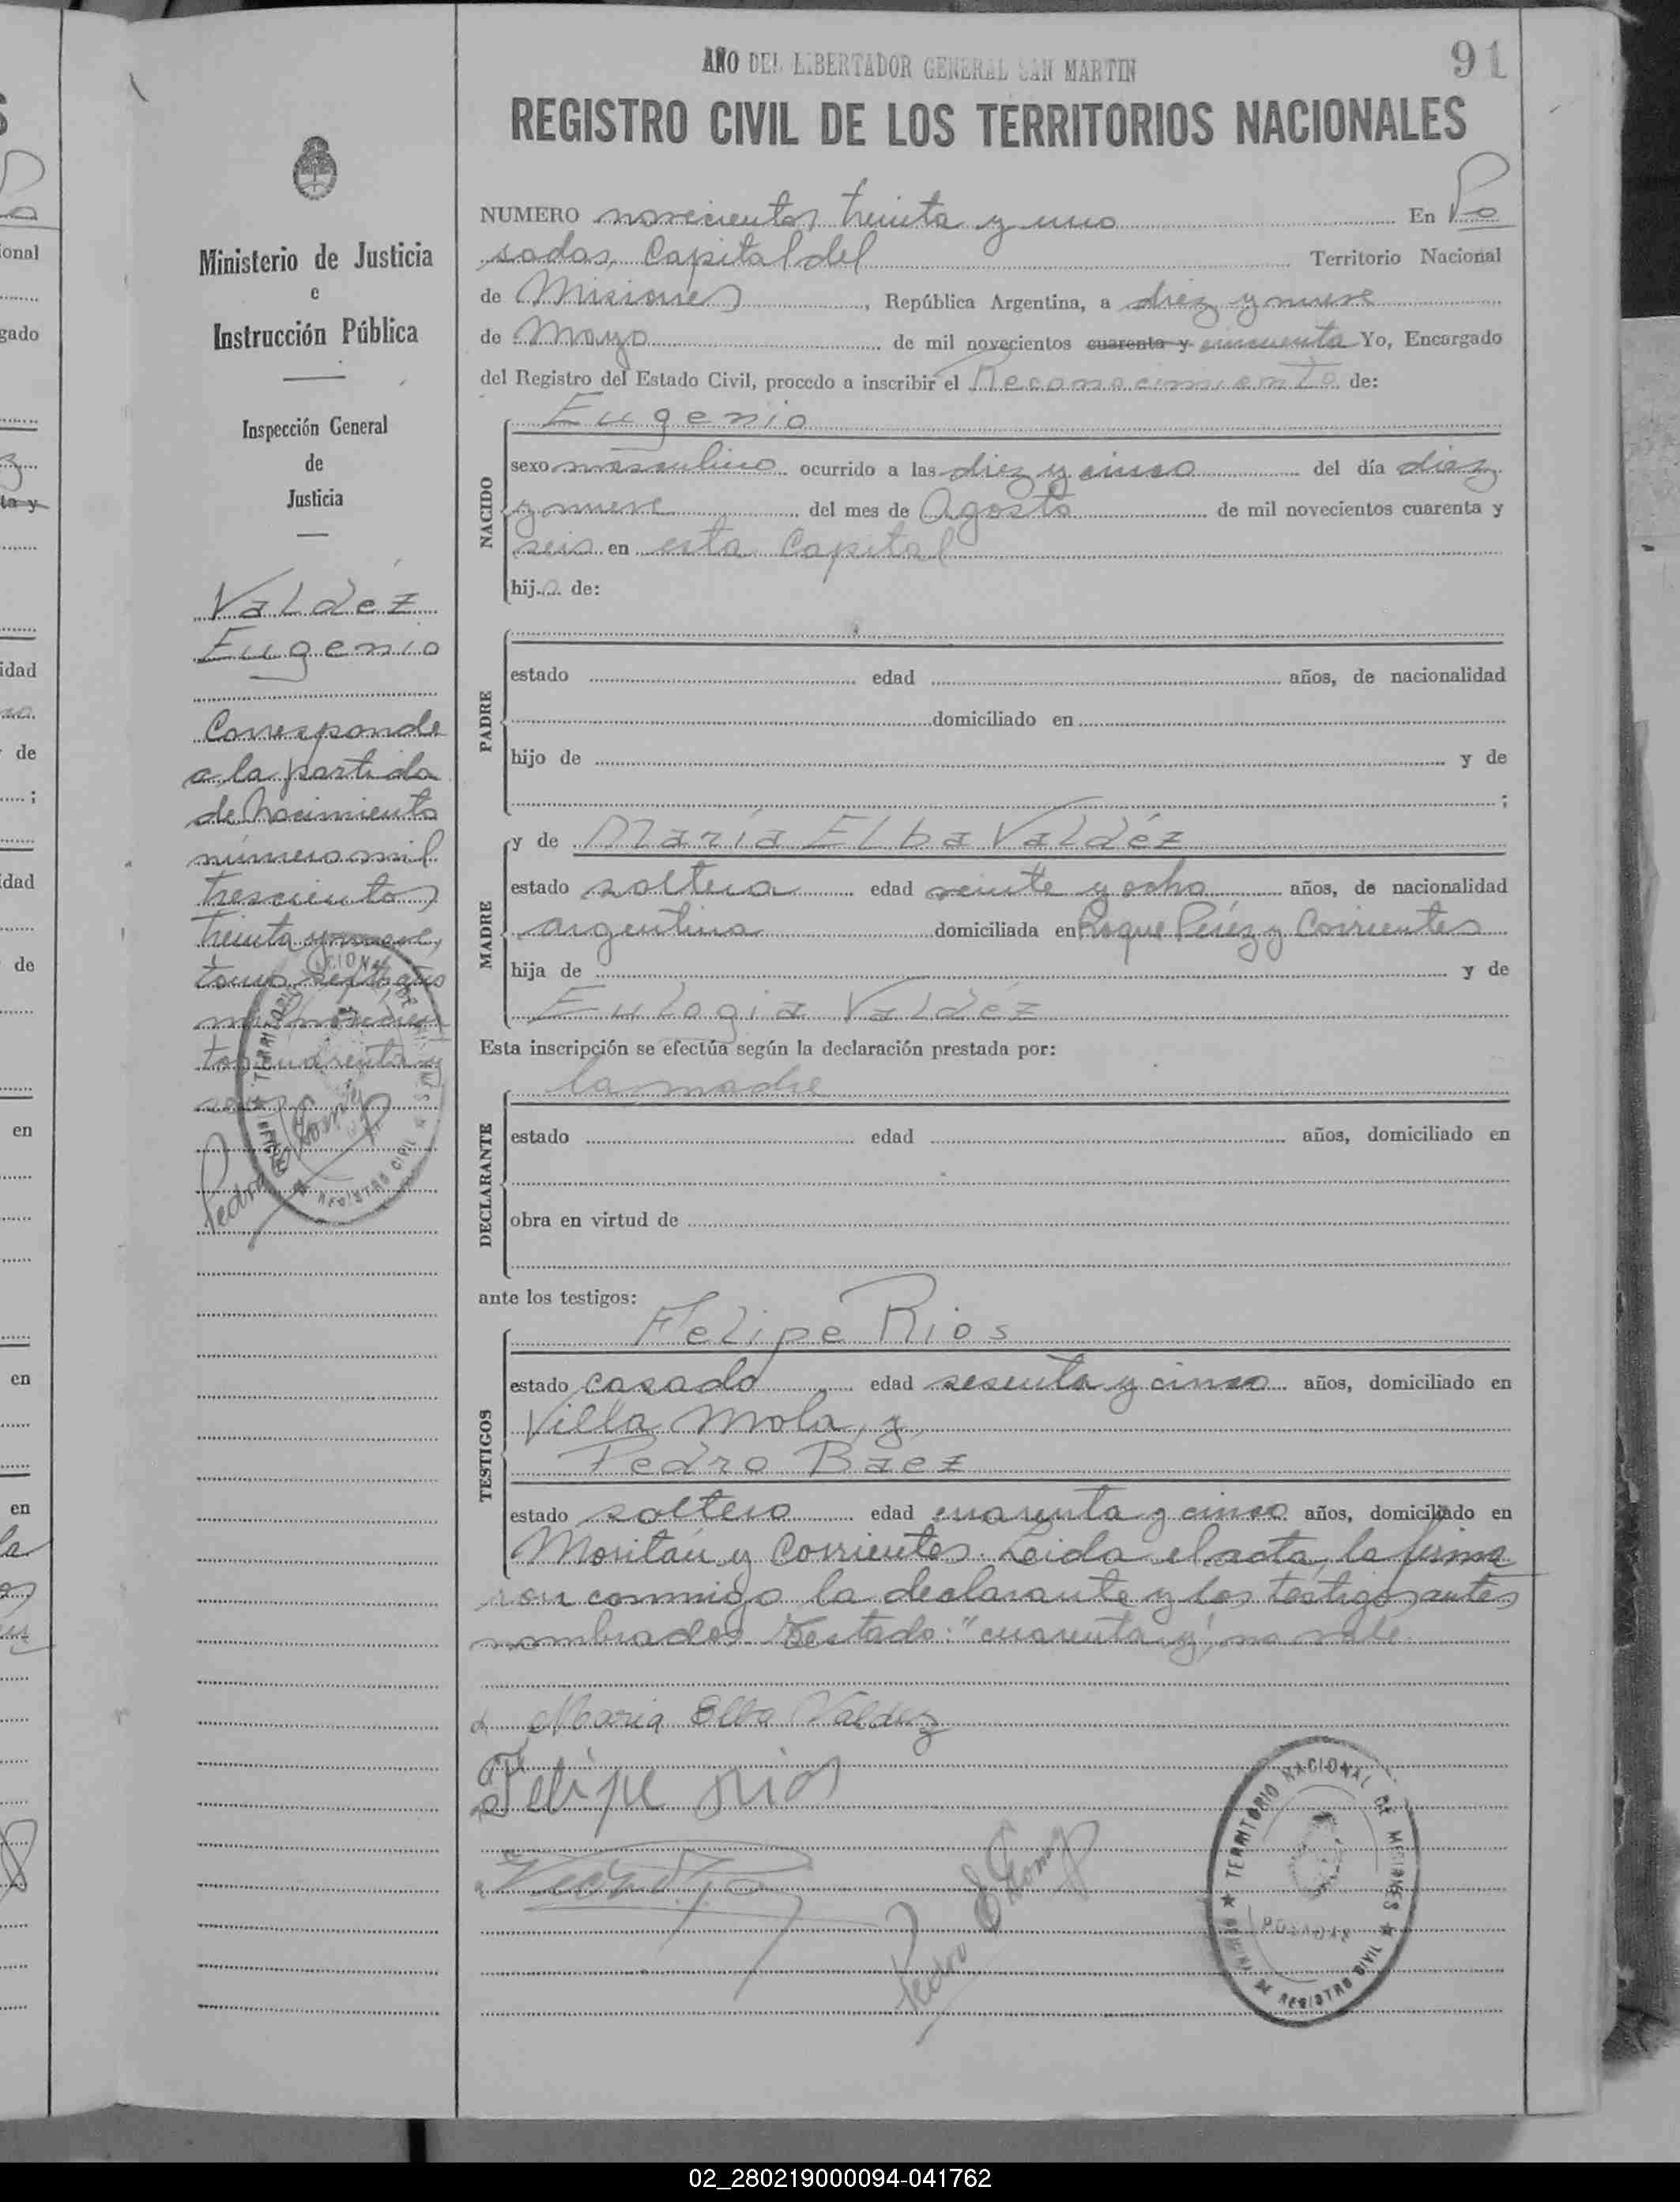 AÑO DEL LIBERTADOR GENERAL SAN MARTIN
91
REGISTRO CIVIL DE LOS TERRITORIOS NACIONALES
Ministerio de Justicia
e
Instrucción Pública
Inspección General
de
Justicia
Valdéz
Eugenio
Corresponde
a la partida
de Nacimiento
número mil
trescientos
treinta y nueve,
tomo
mil novecien
tos cuarenta y
Pedro
NUMERO novecientos treinta y uno En Po
sadas, Capital del Territorio Nacional
de Misiones, República Argentina, a diez y nueve
de Mayo de mil novecientos cuarenta y cincuenta Yo, Encargado
del Registro del Estado Civil, procedo a inscribir el Reconocimiento de:
NACIDO
Eugenio
sexo masculino ocurrido a las diez y cinco del día diez
y nueve del mes de Agosto de mil novecientos cuarenta y
seis en esta Capital
hijo de:
PADRE
estado edad años, de nacionalidad
domiciliado en
hijo de y de
;
MADRE
y de María Elba Valdéz
estado soltera edad veinte y ocho años, de nacionalidad
argentina domiciliada en Roque Peréz y Corrientes
hija de y de
Eulogia Valdéz
Esta inscripción se efectúa según la declaración prestada por:
DECLARANTE
la madre
estado edad años, domiciliado en
obra en virtud de
ante los testigos:
TESTIGOS
Felipe Rios
estado casado edad sesenta y cinco años, domiciliado en
Villa Mola, y
Pedro Báez
estado soltero edad cuarenta y cinco años, domiciliado en
Moritán y Corrientes. Leida el acta, la firma
ron conmigo la declarante y los testigos antes
nombrados. Testado: "cuarenta y", no vale.
Maria Elba Valdez
Felipe rios
Pedro
TERRITORIO NACIONAL DE MISIONES
POSADAS
OFICINA DE REGISTRO CIVIL
02_280219000094-041762